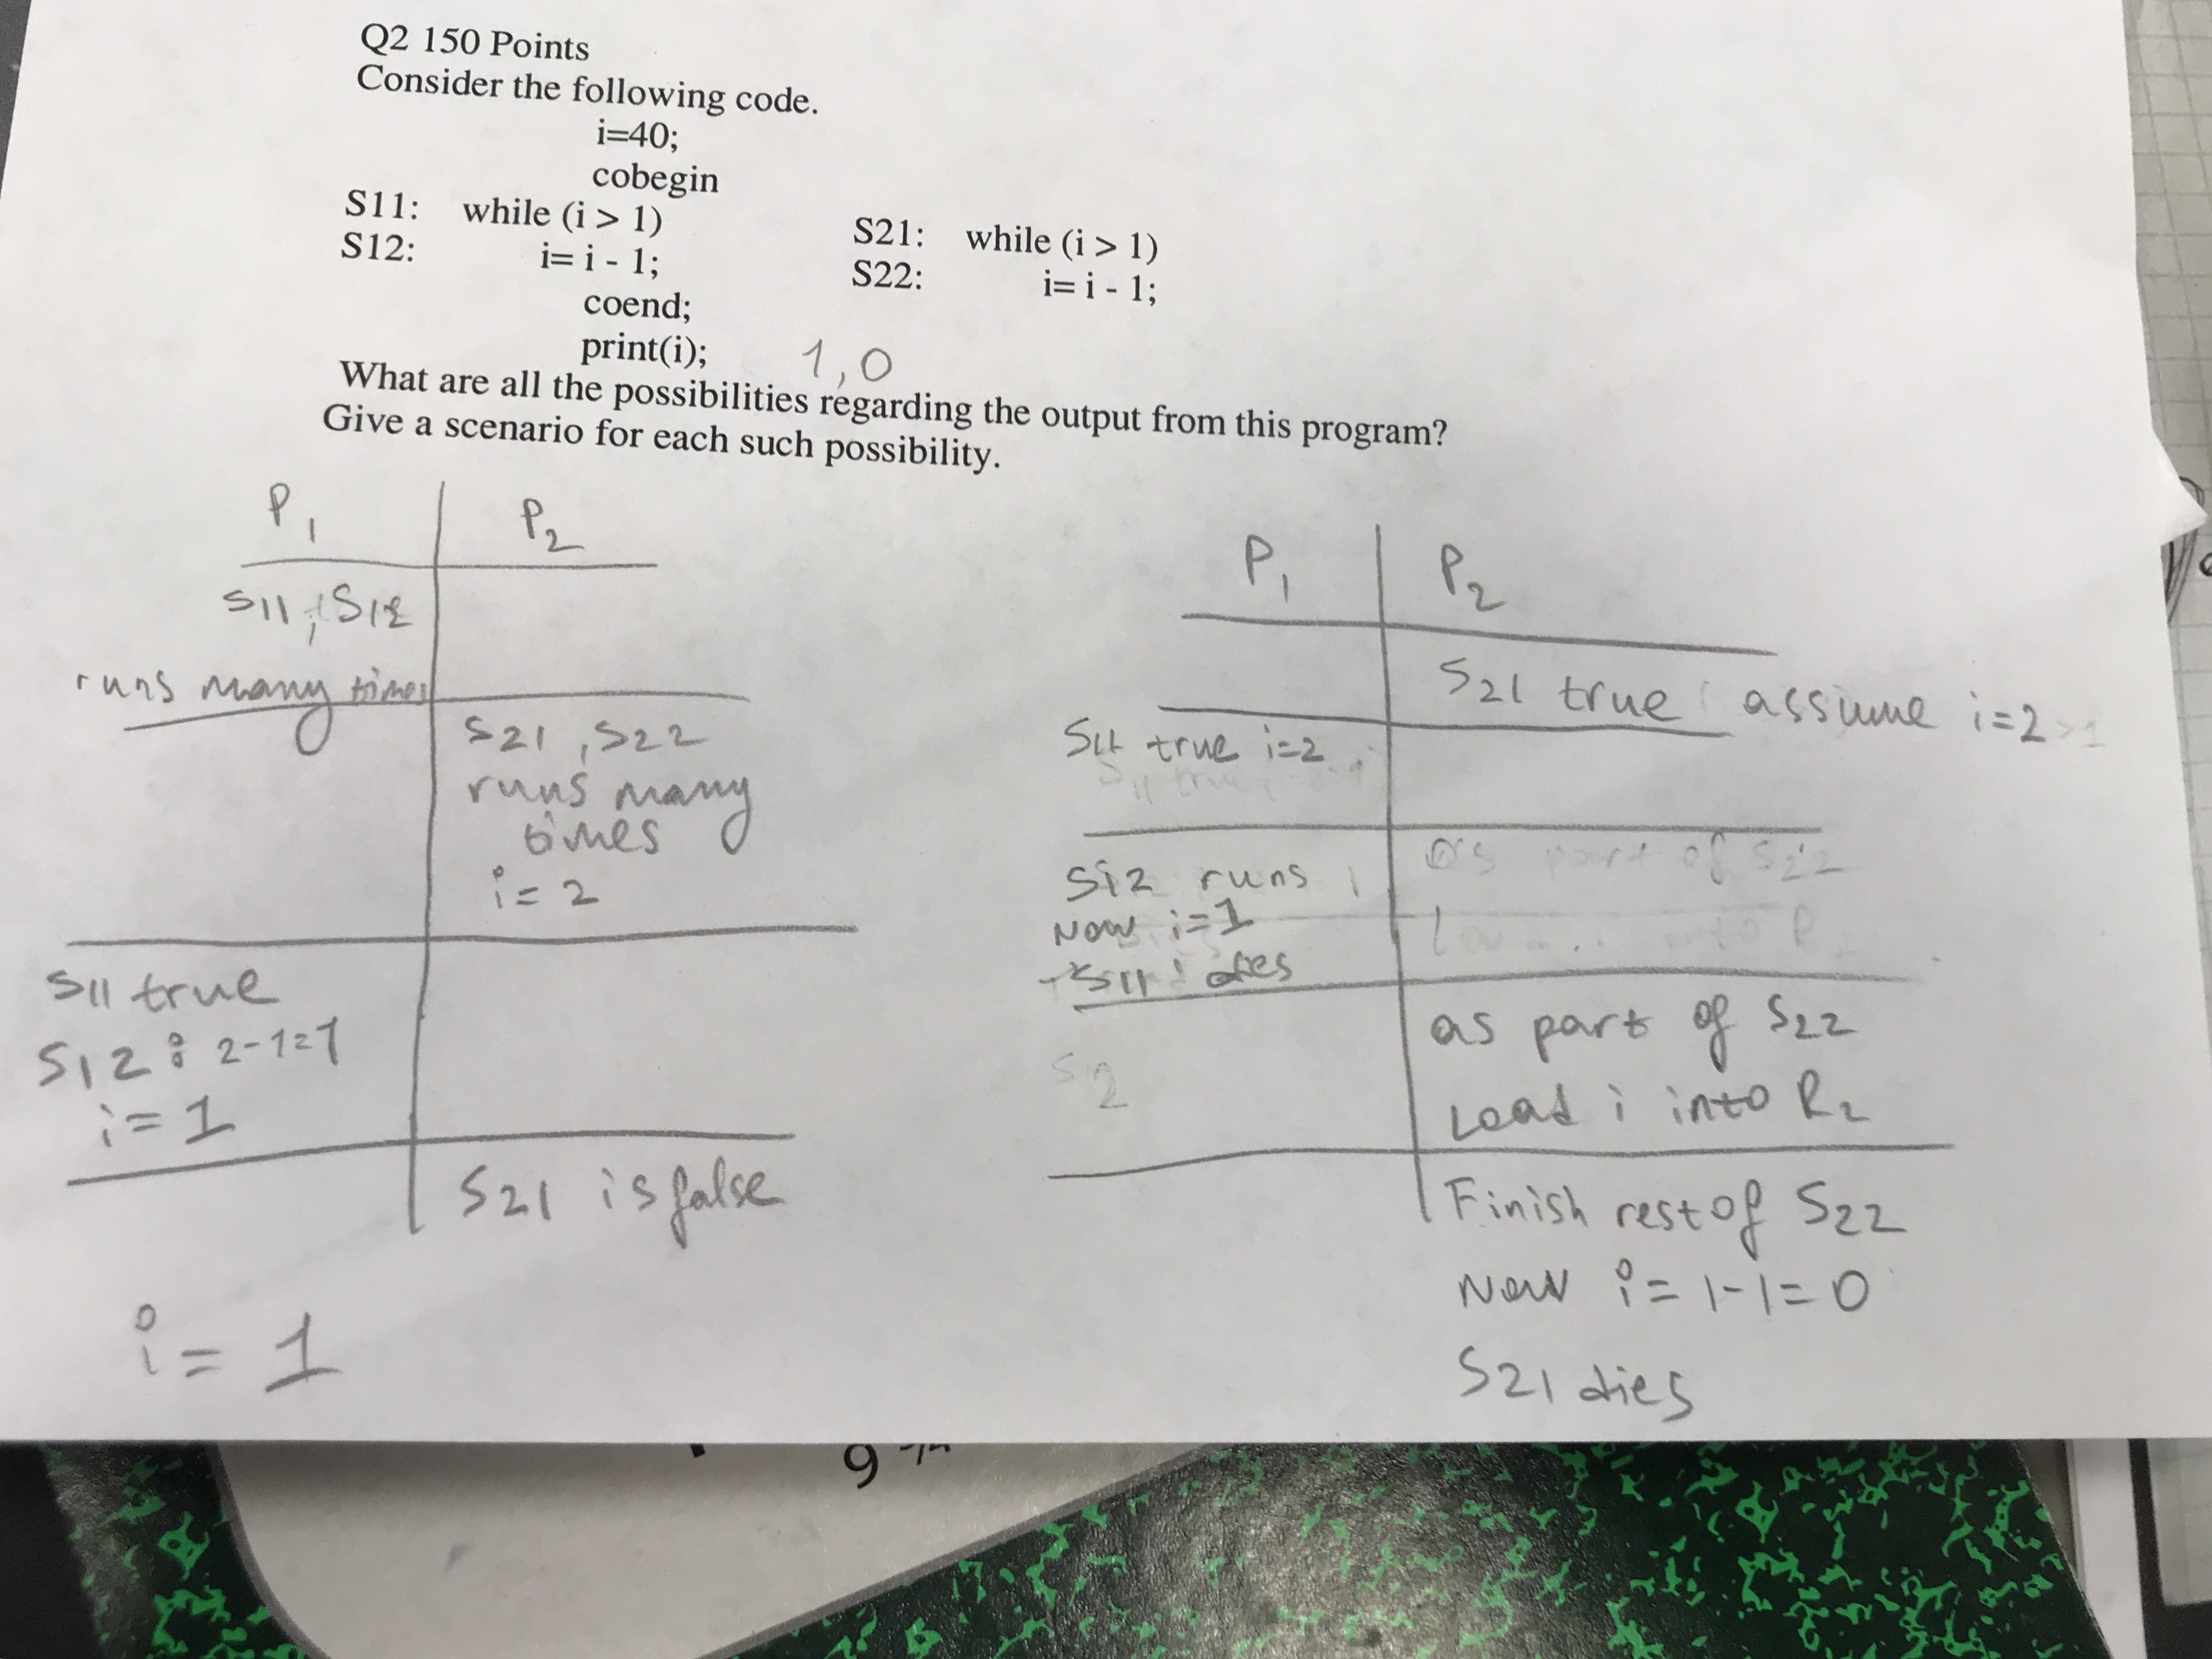 Q2 150 Points
Consider the following code.
i=40;
cobegin
S11: while (i > 1) S21: while (i > 1)
S12: i= i - 1; S22: i= i - 1;
coend;
print(i); 1,0
What are all the possibilities regarding the output from this program?
Give a scenario for each such possibility.
P1 P2
S11, S12
runs many times
S21, S22
runs many
times
i = 2
S11 true
S12: 2-1=1
i = 1
S21 is false
i = 1
P1 P2
S21 true assume i=2 >1
S11 true i=2
as part of S22
S12 runs
Now i=1
S11 dies
as part of S22
Load i into R2
S2
Finish rest of S22
Now i = 1-1=0
S21 dies
9